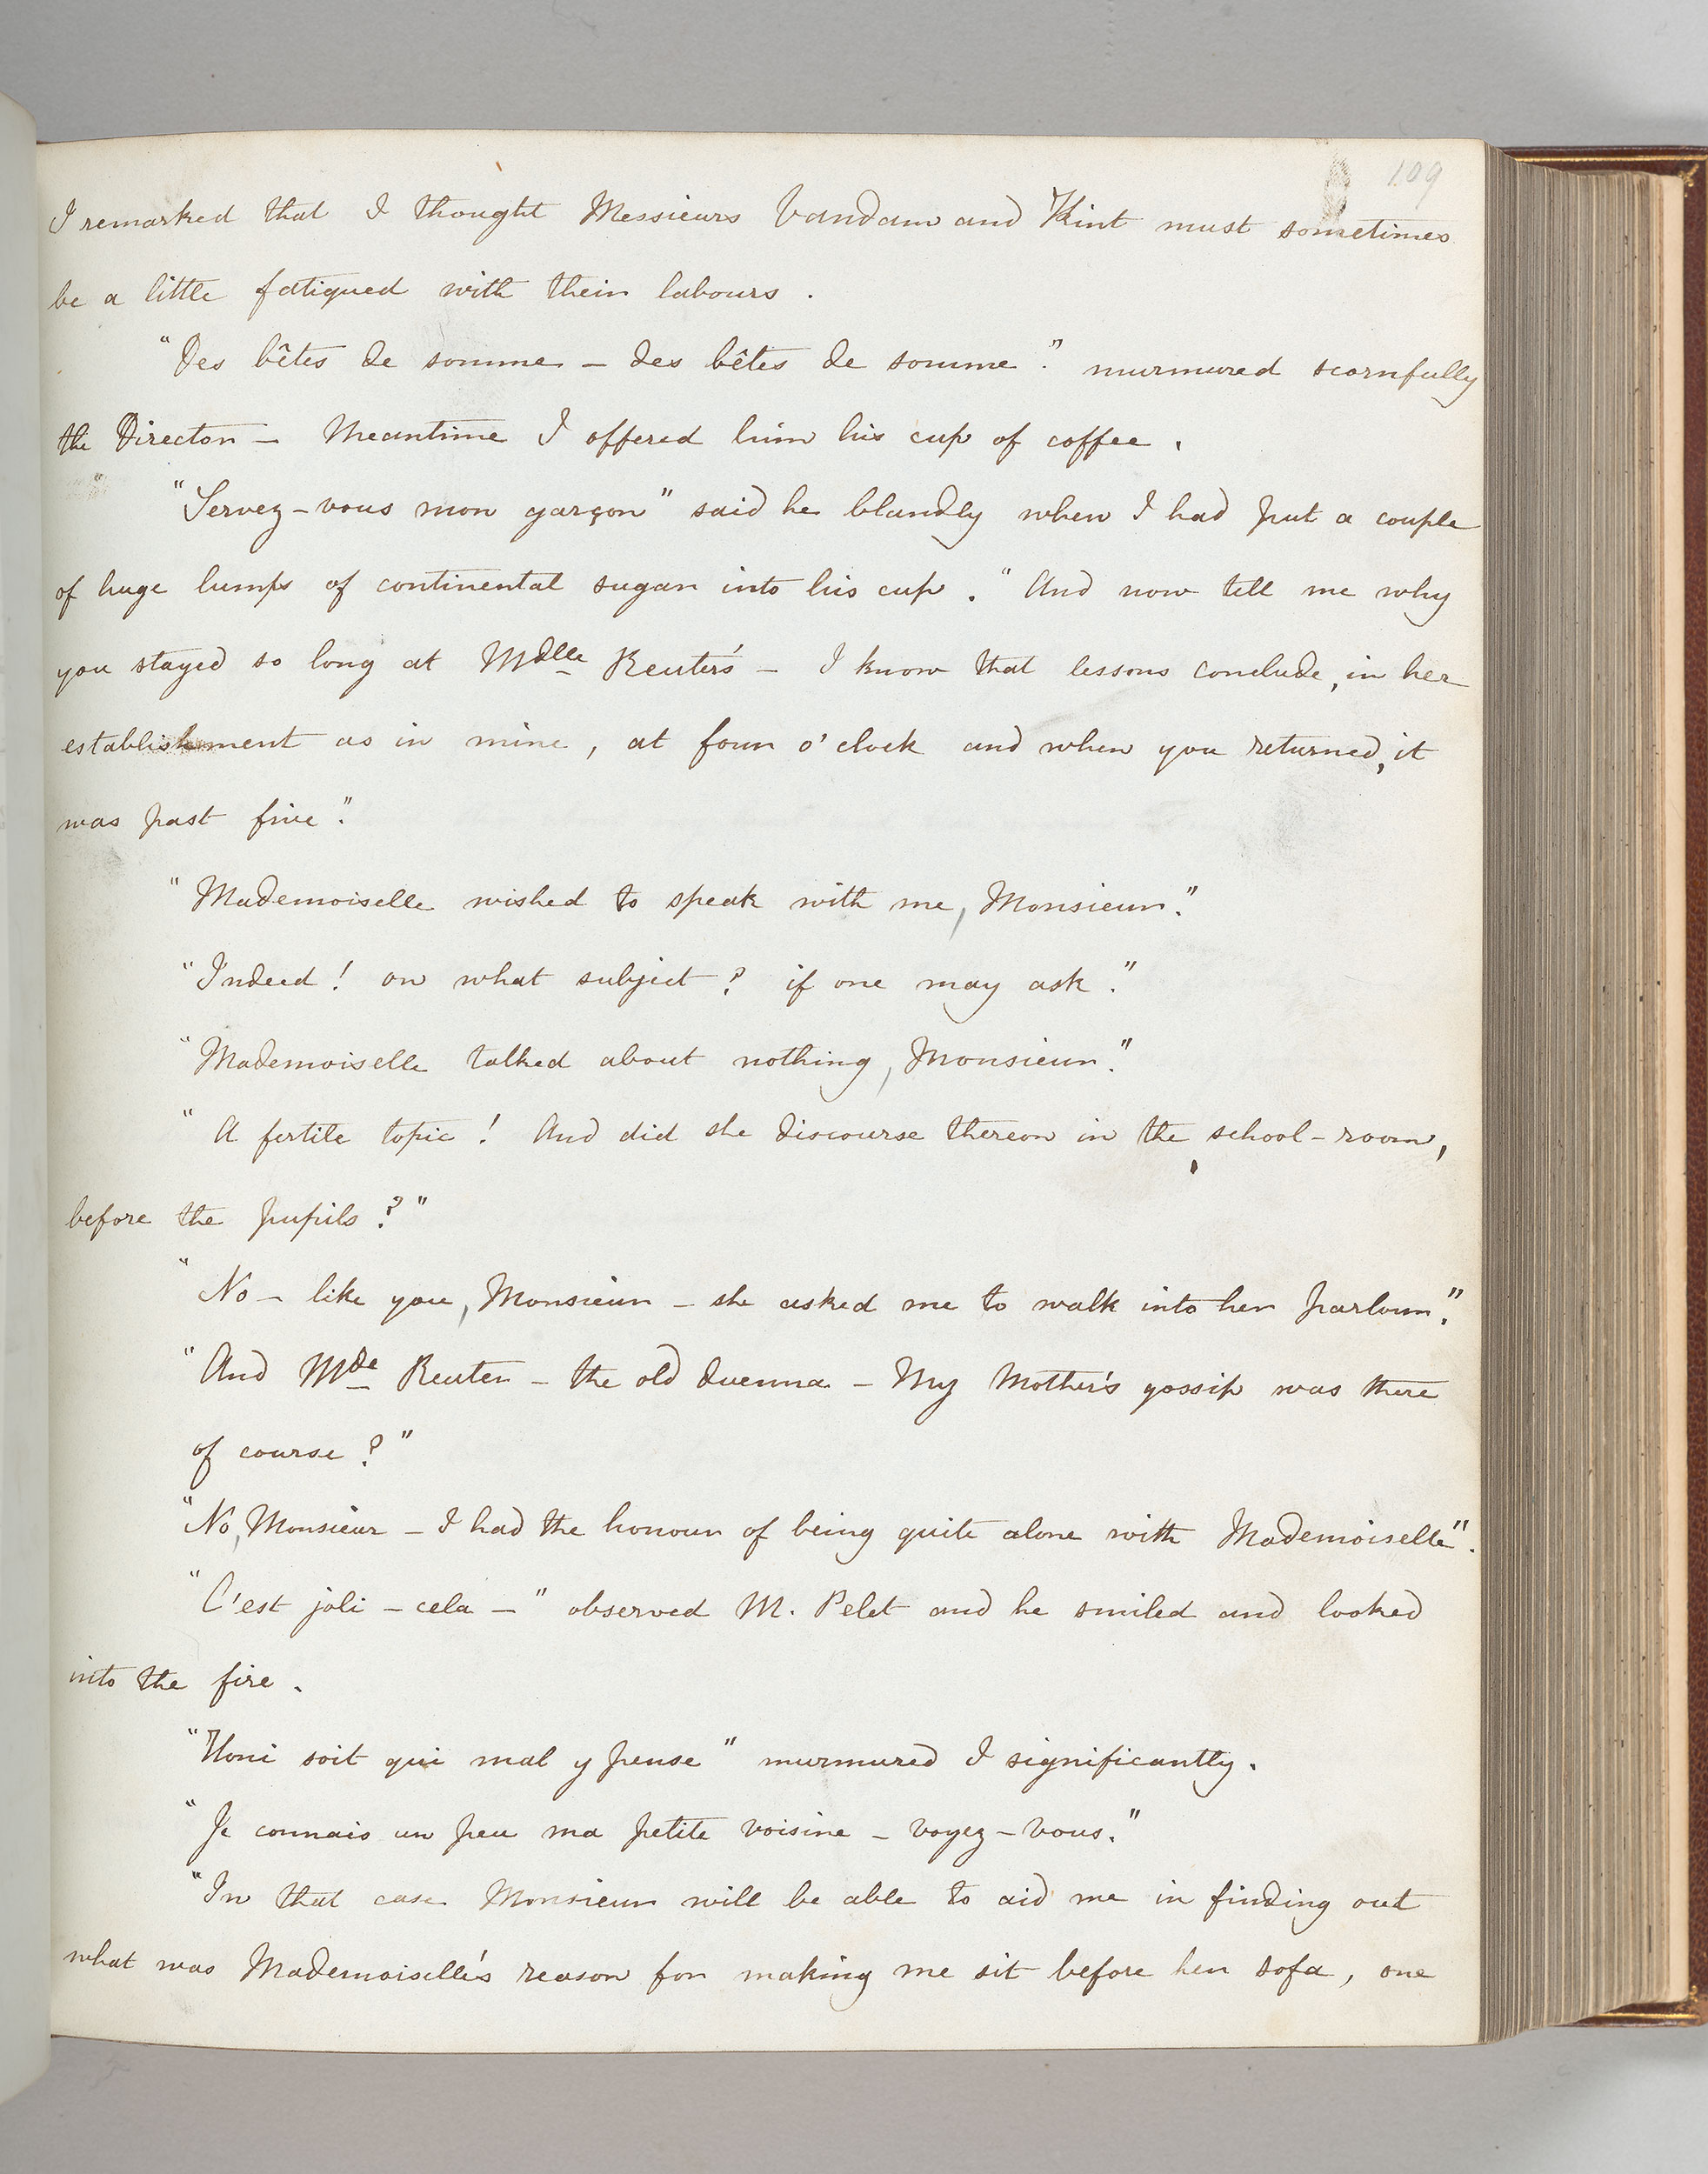 109
I remarked that I thought Messieurs Vandam and Kint must sometimes
be a little fatigued with their labours .
"Des bêtes de somme – des bêtes de somme ." murmured scornfully
the Director – Meantime I offered him his cup of coffee .
"Servez-vous mon garçon" said he blandly when I had put a couple
of huge lumps of continental sugar into his cup . "And now tell me why
you stayed so long at Mdlle Reuter's – I know that lessons conclude, in her
establishment as in mine, at four o'clock and when you returned, it
was past five."
"Mademoiselle wished to speak with me, Monsieur."
"Indeed! on what subject? if one may ask."
"Mademoiselle talked about nothing, Monsieur."
"A fertile topic! And did she discourse thereon in the school-room,
before the pupils?"
"No – like you, Monsieur – she asked me to walk into her parlour."
"And Mde Reuter – the old duenna – My Mother's gossip was there
of course?"
"No, Monsieur – I had the honour of being quite alone with Mademoiselle".
"C'est joli – cela –" observed M. Pelet and he smiled and looked
into the fire .
"Honi soit qui mal y pense" murmured I significantly.
"Je connais un peu ma petite voisine – voyez-vous."
"In that case Monsieur will be able to aid me in finding out
what was Mademoiselle's reason for making me sit before her sofa, one